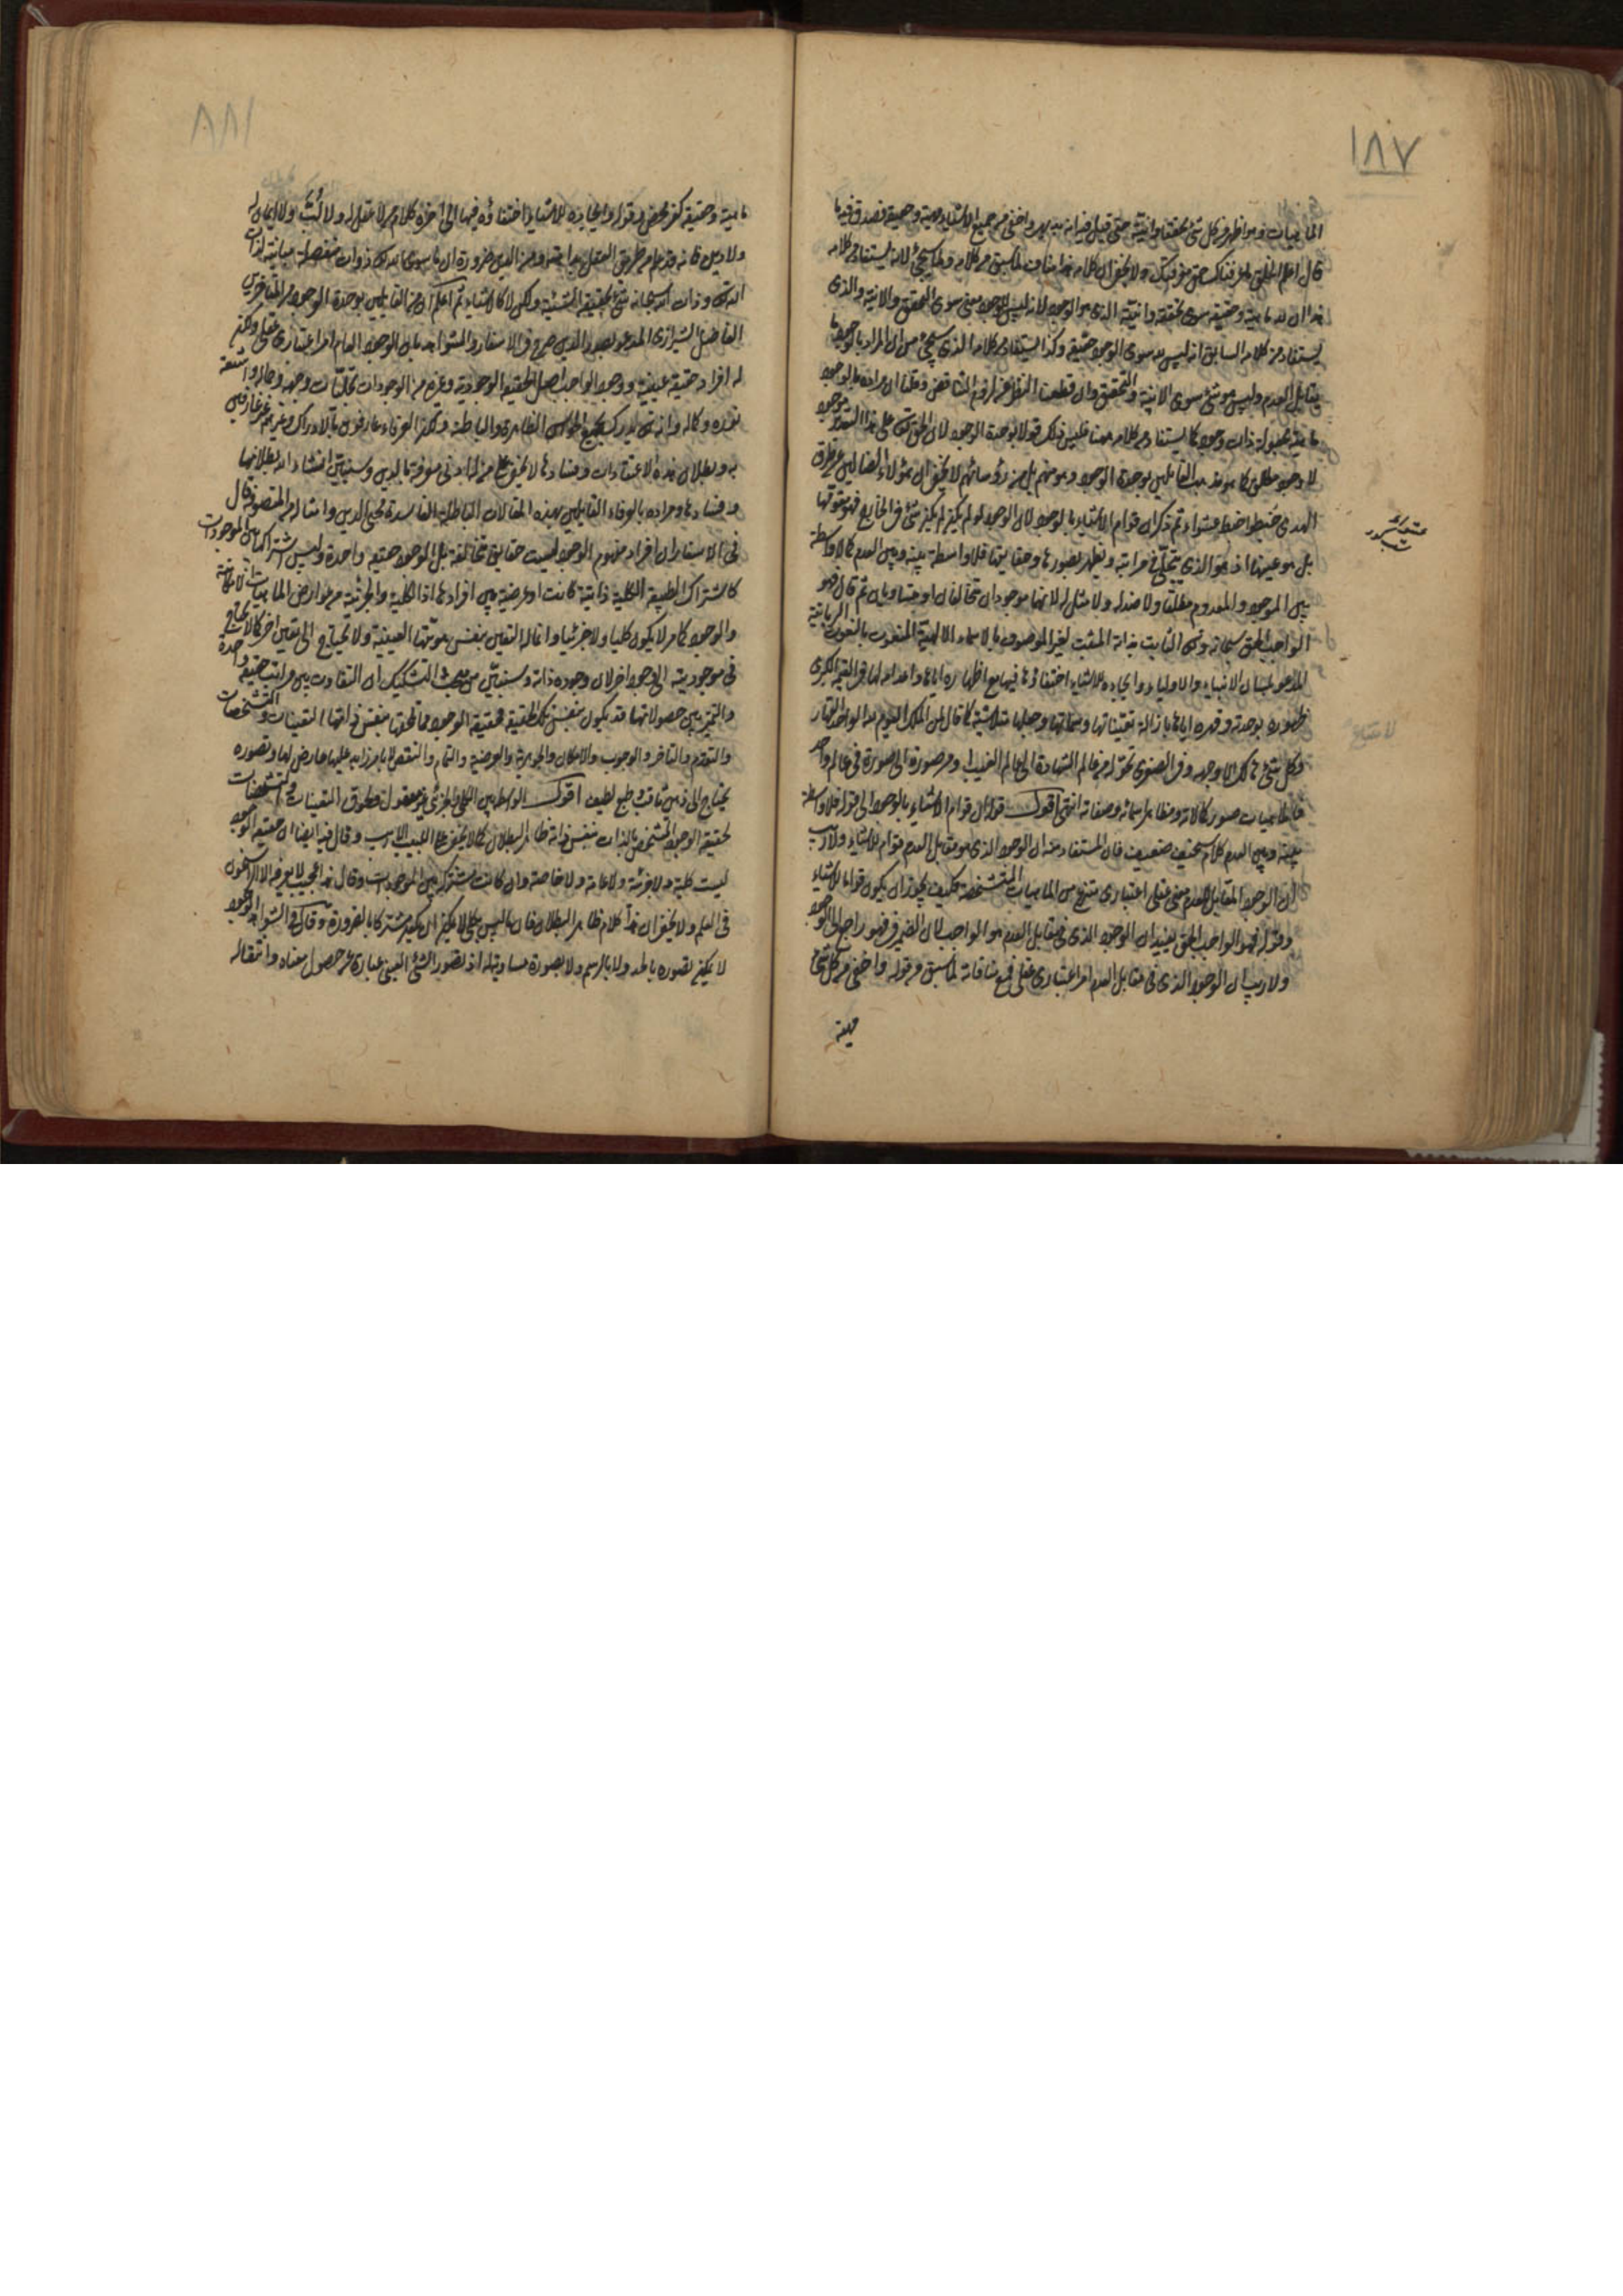 ١٨٧
الماهيات فهو اظهر من كل شئ تحققا وانية حتى قيل فيه انه بديهى واخفى من جميع الاشياء مهية وحقيقة فصدق فيه ما
قال اعلم الخلق به ما عرفناك حق معرفتك ولا يخفى ان كلامه هذا مناف لما سبق من كلامه ولما سيجئ لانه يستفاد من كلامه
هذا ان له ماهية وحقيقة سوى تحققه وانيته الذى هو الوجود لانه ليس للوجود معنى سوى التحقق والانية والذى
يستفاد من كلامه السابق انه ليس له سوى الوجود حقيقة وكذا يستفاد من كلامه الذى سيجئ من ان المراد بالوجود ما
يقابل العدم وليس هو شئ سوى الانية والتحقق وان قطعنا النظر عن لزوم التناقض وقلنا ان مراده بالوجود
ماهية مجهولة ذات وجود كما يستفاد من كلامه ههنا فليس ذلك قولا بوحدة الوجود لان الحق تعالى على هذا التقدير موجود
لا وجود مطلق كما هو مذهب القائلين بوحدة الوجود وهو منهم بل من رؤسائهم لا يخفى ان هؤلاء الضالين عن طريق
الهدى خبطوا خبط عشواء ثم ذكر ان قوام الاشياء بالوجود لان الوجود لو لم يكن لم يكن شئ فى الخارج فهو مقومها
بل هو عينها اذ هو الذى يتجلى فى مراتبه ويظهر بصورها وحقايقها فلا واسطة بينه وبين العدم كما لا واسطة
بين الموجود والمعدوم مطلقا ولا ضد له ولا مثل له لانهما موجودان متخالفان او متساويان ثم قال فهو
الواجب الحق سبحانه وتعالى الثابت بذاته المثبت لغيره الموصوف بالاسماء الالهية المنعوت بالنعوت الربانية
المدعو بلسان الانبياء والاولياء وايجاده للاشياء اختفاؤه فيها مع اظهاره اياها واعدامه لها فى القيمة الكبرى
ظهوره بوحدته وقهره اياها بازالة تعيناتها وسماتها وجعلها متلاشية كما قال لمن الملك اليوم لله الواحد القهار
وكل شئ هالك الا وجهه وفى الصغرى تحوله من عالم الشهادة الى عالم الغيب او من صورة الى صورة فى عالم واحد
فالماهيات صور كمالاته ومظاهر اسمائه وصفاته انتهى اقول قوله ان قوام الاشياء بالوجود الى قوله فلا واسطة
بينه وبين العدم كلام سخيف ضعيف فان المستفاد منه ان الوجود الذى هو مقابل العدم قوام للاشياء ولا ريب
ان الوجود المقابل للعدم معنى عقلى اعتبارى منتزع من الماهيات المتشخصة فكيف يجوز ان يكون قواما للاشياء
وقوله فهو الواجب الحق يفيد ان الوجود الذى فى مقابل العدم هو الواجب لان الضمير فى فهو راجع الى الوجود
ولا ريب ان الوجود الذى فى مقابل العدم امر اعتبارى عقلى فمع منافاته لما سبق من قوله واخفى من كل شئ
مهية
١٨٨
ماهية وحقيقة كفر محض وقوله وايجاده للاشياء اختفاؤه فيها الى آخره كلام من لا عقل له ولا لب ولا ايمان له
ولا دين فانه قد علم من طريق العقل بداهة ومن الدين ضرورة ان ما سوى الله تعالى ذوات منفصلة مباينة لذات
الله تعالى وذات الله سبحانه شئ بحقيقة الشيئية ولكن لا كالاشياء ثم اعلم ان من القايلين بوحدة الوجود من المتأخرين
الفاضل الشيرازى المدعو بصدر الدين صرح فى الاسفار والشواهد بان الوجود العام امر اعتبارى عقلى ولكن
له افراد حقيقة عينية ووجود الواجب اصل الحقيقة الوجودية وغيره من الوجودات تجليات وجهه وجماله واشعة
نوره وكماله وانه تعالى يدرك بجميع الحواس الظاهرة والباطنة ولكن العرفاء عارفون بالادراك وغيرهم غير عارفين
به وبطلان هذه الاعتقادات وفسادها لا يخفى على من له ادنى معرفة بالدين وسنبين انشاء الله بطلانها
وفسادها ومراده بالعرفاء القايلين بهذه المقالات الباطلة الفاسدة محيى الدين وامثاله من المتصوفة قال
فى الاسفار ان افراد مفهوم الوجود ليست حقايق متخالفة بل الوجود حقيقة واحدة وليس اشتراكها بين الموجودات
كاشتراك الطبيعة الكلية ذاتية كانت او عرضية بين افرادها اذا الكلية والجزئية من عوارض الماهيات الامكانية
والوجود كما مر لا يكون كليا ولا جزئيا وانما له التعين بنفس هويتها العينية ولا يحتاج الى تعين اخر كما لا يحتاج
فى موجوديته الى وجود اخر لان وجوده ذاته وسنبين من مبحث التشكيك ان التفاوت بين مراتب حقيقة واحدة
والتميز بين حصولاتها قد يكون بنفس تلك الحقيقة فحقيقة الوجود مما يلحقها بنفس ذاتها التعينات والتشخصات
والتقدم والتأخر والوجوب والامكان والجوهرية والعرضية والتمام والنقص لا بامر زايد عليها عارض لها وتصوره
يحتاج الى ذهن ثاقب وطبع لطيف اقول الواسطة بين الكلى والجزئى غير معقول ولحوق التعينات والتشخصات
لحقيقة الوجود المتشخص بالذات بنفس ذاته ظاهر البطلان كما لا يخفى على اللبيب الاريب وقال فيه ايضا ان حقيقة الوجود
ليست كلية ولا جزئية ولا عامة ولا خاصة وان كانت مشتركة بين الموجودات وقال هذا عجيب لا يعرفه الا الراسخون
فى العلم ولا يخفى ان هذا كلام ظاهر البطلان فان ما ليس بكلى لا يمكن ان يكون مشتركا بالضرورة وقال فى الشواهد الوجود
لا يمكن تصوره بالحد ولا بالرسم ولا بصورة مساوية له اذ تصور الشئ العينى عبارة عن حصول معناه وانتقاله